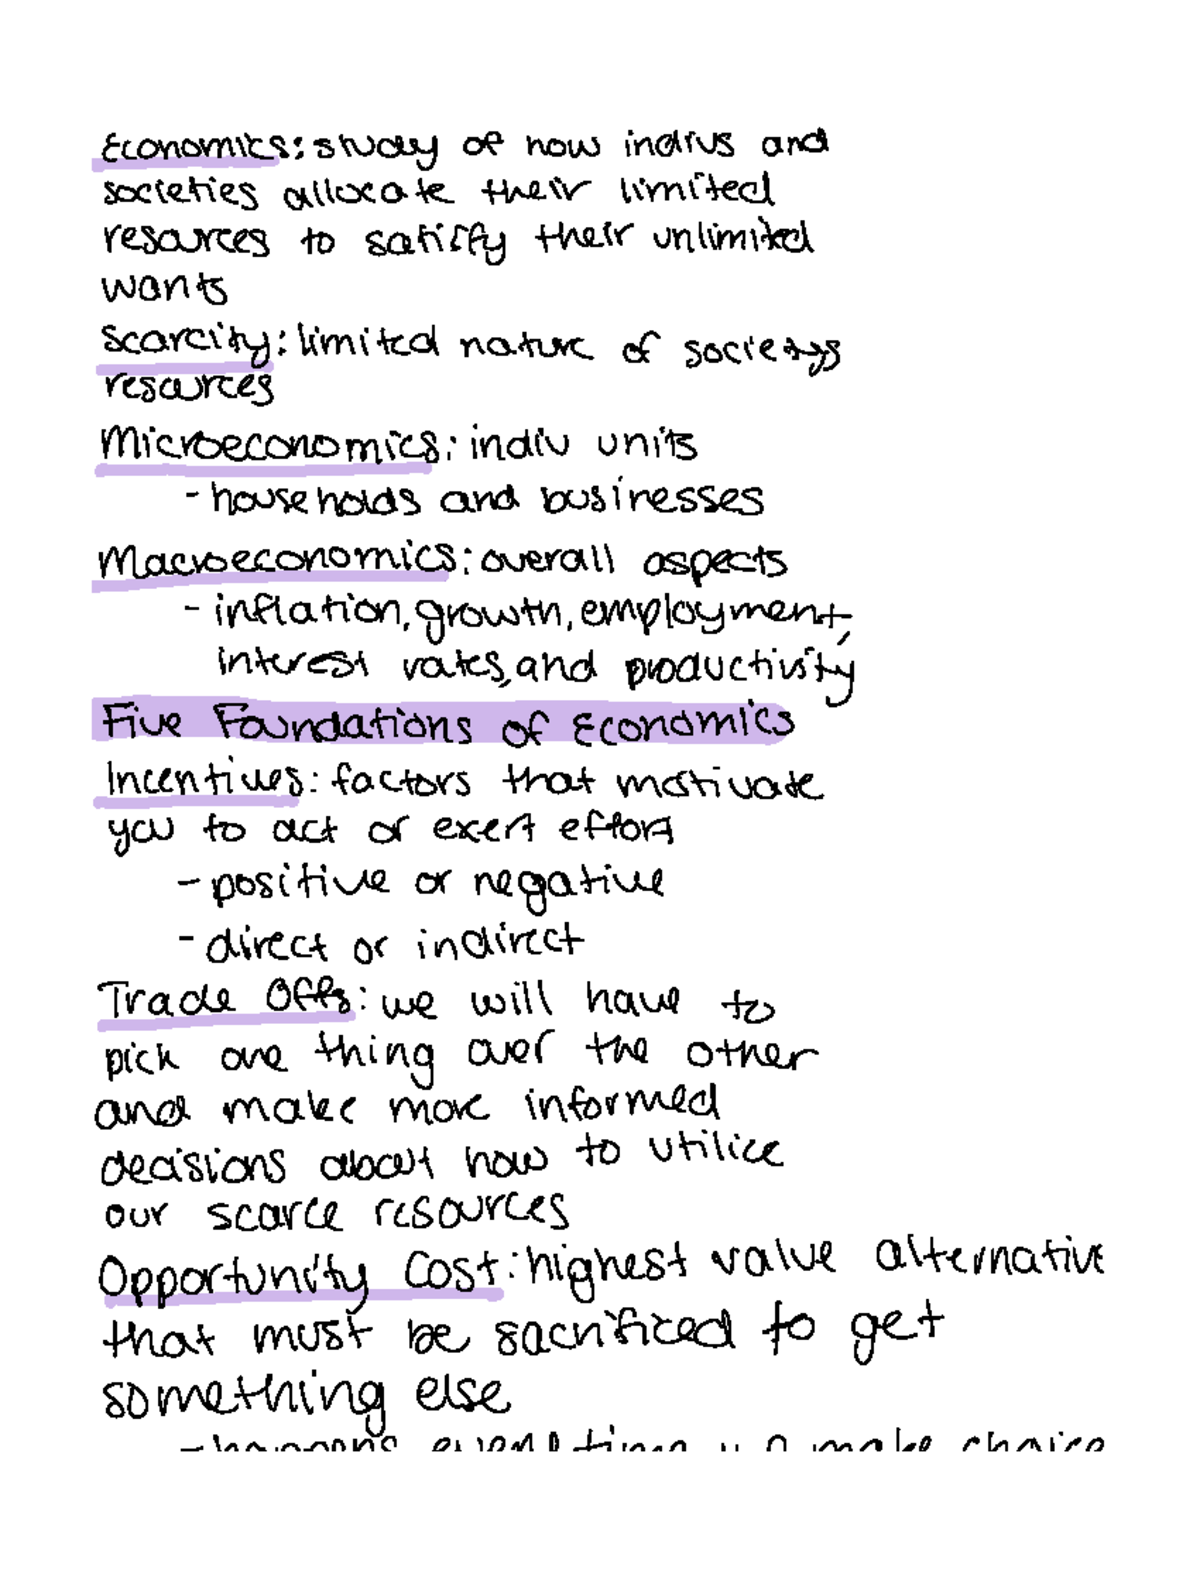 Economics: study of how indivs and
societies allocate their limited
resources to satisfy their unlimited
wants
Scarcity: limited nature of societys
resources
Microeconomics: indiv units
- households and businesses
Macroeconomics: overall aspects
- inflation, growth, employment,
interest rates, and productivity
Five Foundations of Economics
Incentives: factors that motivate
you to act or exert effort
- positive or negative
- direct or indirect
Trade Offs: we will have to
pick one thing over the other
and make more informed
decisions about how to utilize
our scarce resources
Opportunity Cost: highest value alternative
that must be sacrificed to get
something else
- happens every time u make choice